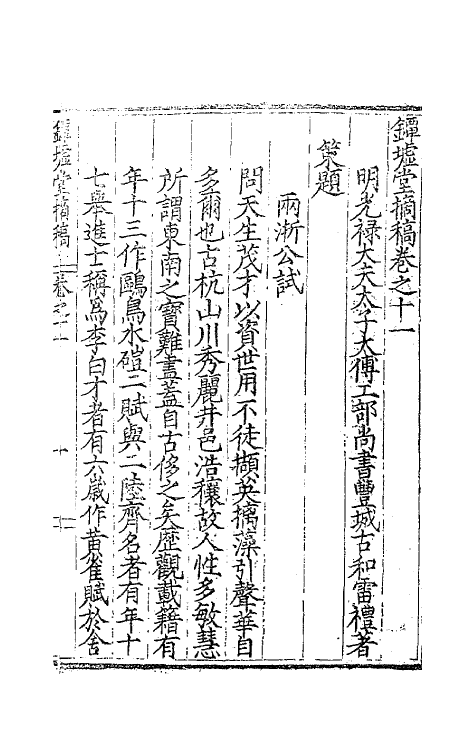 鐔墟堂摘稿卷之十一
明光祿大夫太子太傅工部尚書豐城古和雷禮著
策題
兩浙公試
問天生茂才以資世用不徒擷英摛藻引聲華自
多爾也古杭山川秀麗井邑浩穰故人性多敏慧
所謂東南之寶難盡蓋自古侈之矣歷觀載籍有
年十三作鷗鳥水磑二賦與二陸齊名者有年十
七舉進士稱為李白才者有六歲作黃雀賦於舍
鐔墟堂摘稿 卷之十一